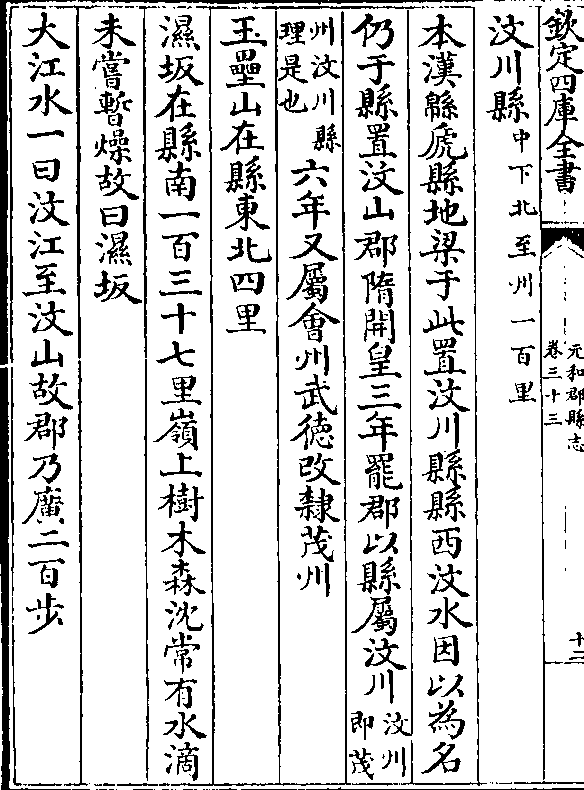 欽定四庫全書
元和郡縣志
卷三十三
十二
汶川縣中下北至州一百里
本漢緜虒縣地梁于此置汶川縣縣西汶水因以為名
仍于縣置汶山郡隋開皇三年罷郡以縣屬汶川汶州即茂
州汶川縣理是也六年又屬會州武德改隸茂州
玉壘山在縣東北四里
濕坂在縣南一百三十七里嶺上樹木森沈常有水滴
未嘗暫燥故曰濕坂
大江水一曰汶江至汶山故郡乃廣二百步